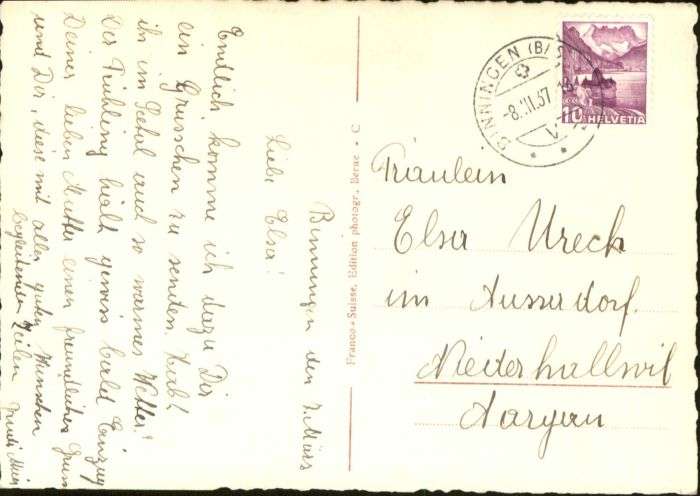 Binningen den 7. März
Liebe Elsa!
Endlich komme ich dazu Dir
ein Grüsschen zu senden. Habt
ihr im Seetal auch so warmes Wetter?
Der Frühling hält gewiss bald Einzug
Deiner lieben Mutter einen freundlichen Gruss
und Dir, diese mit allen guten Wünschen
begleitenden Zeilen
Franco-Suisse, Edition photogr., Berne • C
BINNINGEN (B
-8.III.37
10 HELVETIA
Fräulein
Elsa Urech
im Ausserdorf.
Niederhallwil
Aargau